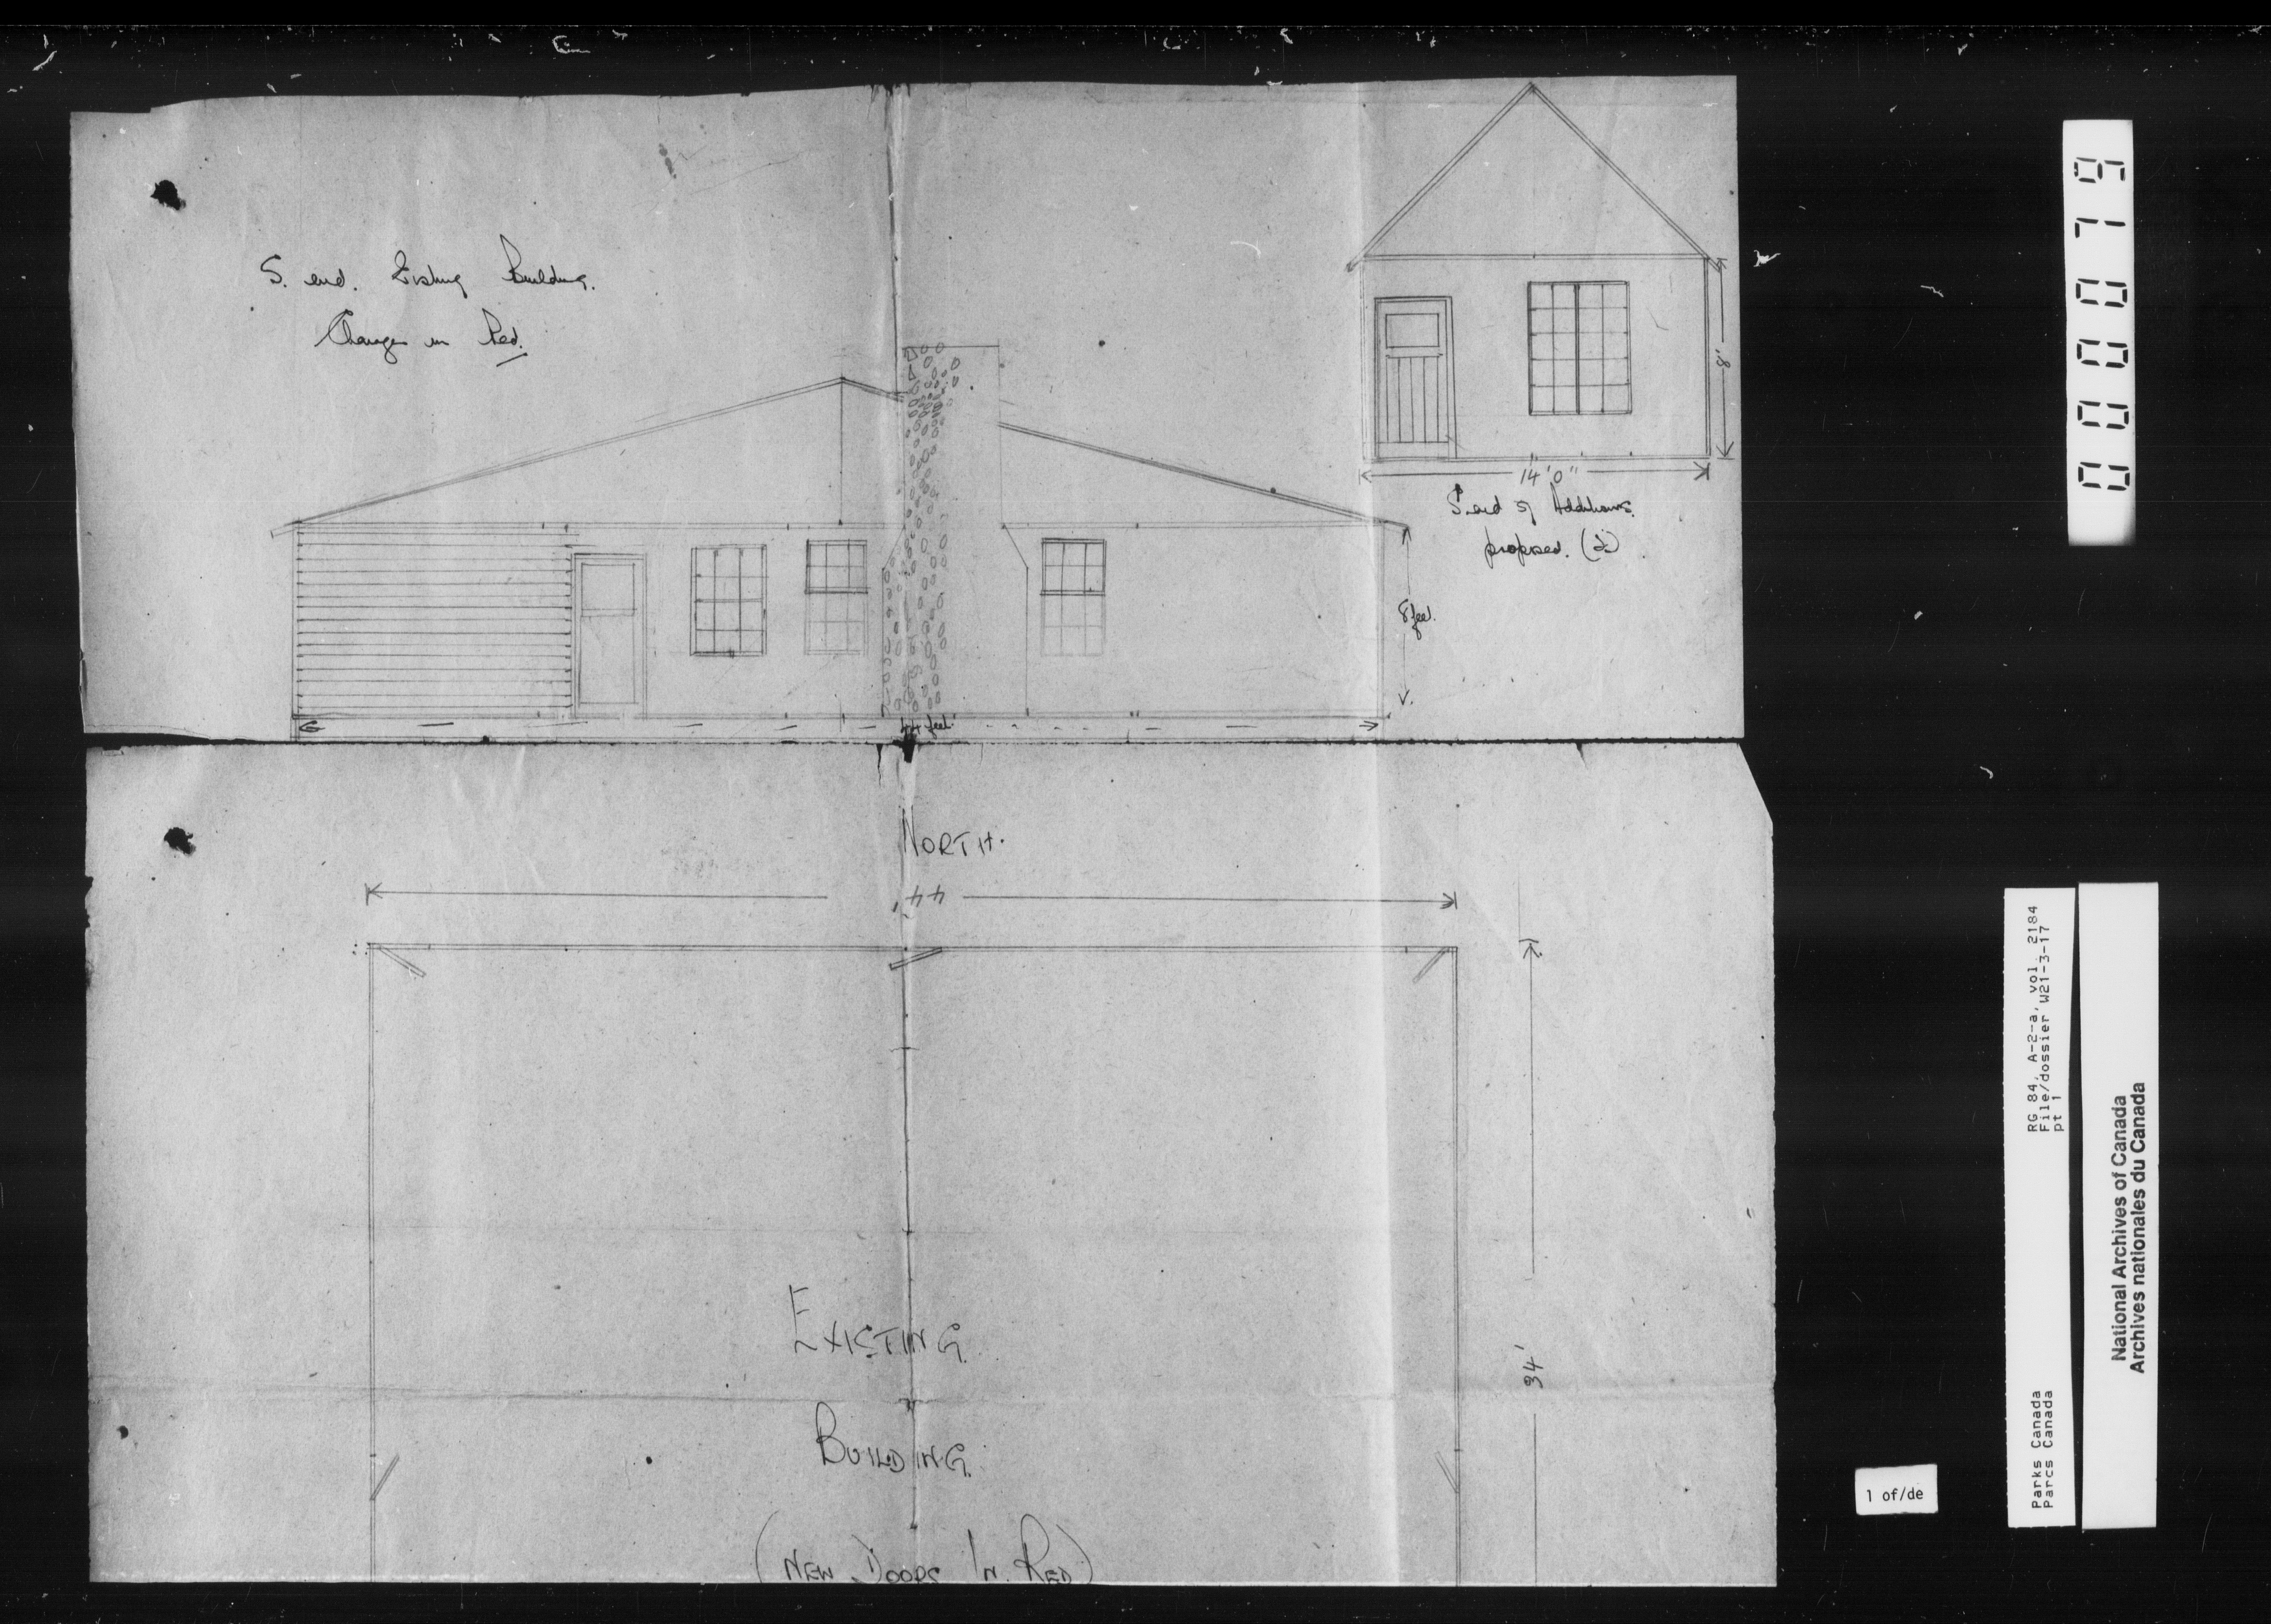 S. end. Existing Building.
Changes in Red.
8'
14'0"
S. end of Additions.
proposed. (2)
8 feet.
44 feet.
NORTH.
44'
34'
EXISTING
BUILDING.
(NEW DOORS IN RED)
0000079
RG 84, A-2-a, vol. 2184
File/dossier W21-3-17
pt 1
Parks Canada
Parcs Canada
National Archives of Canada
Archives nationales du Canada
1 of/de